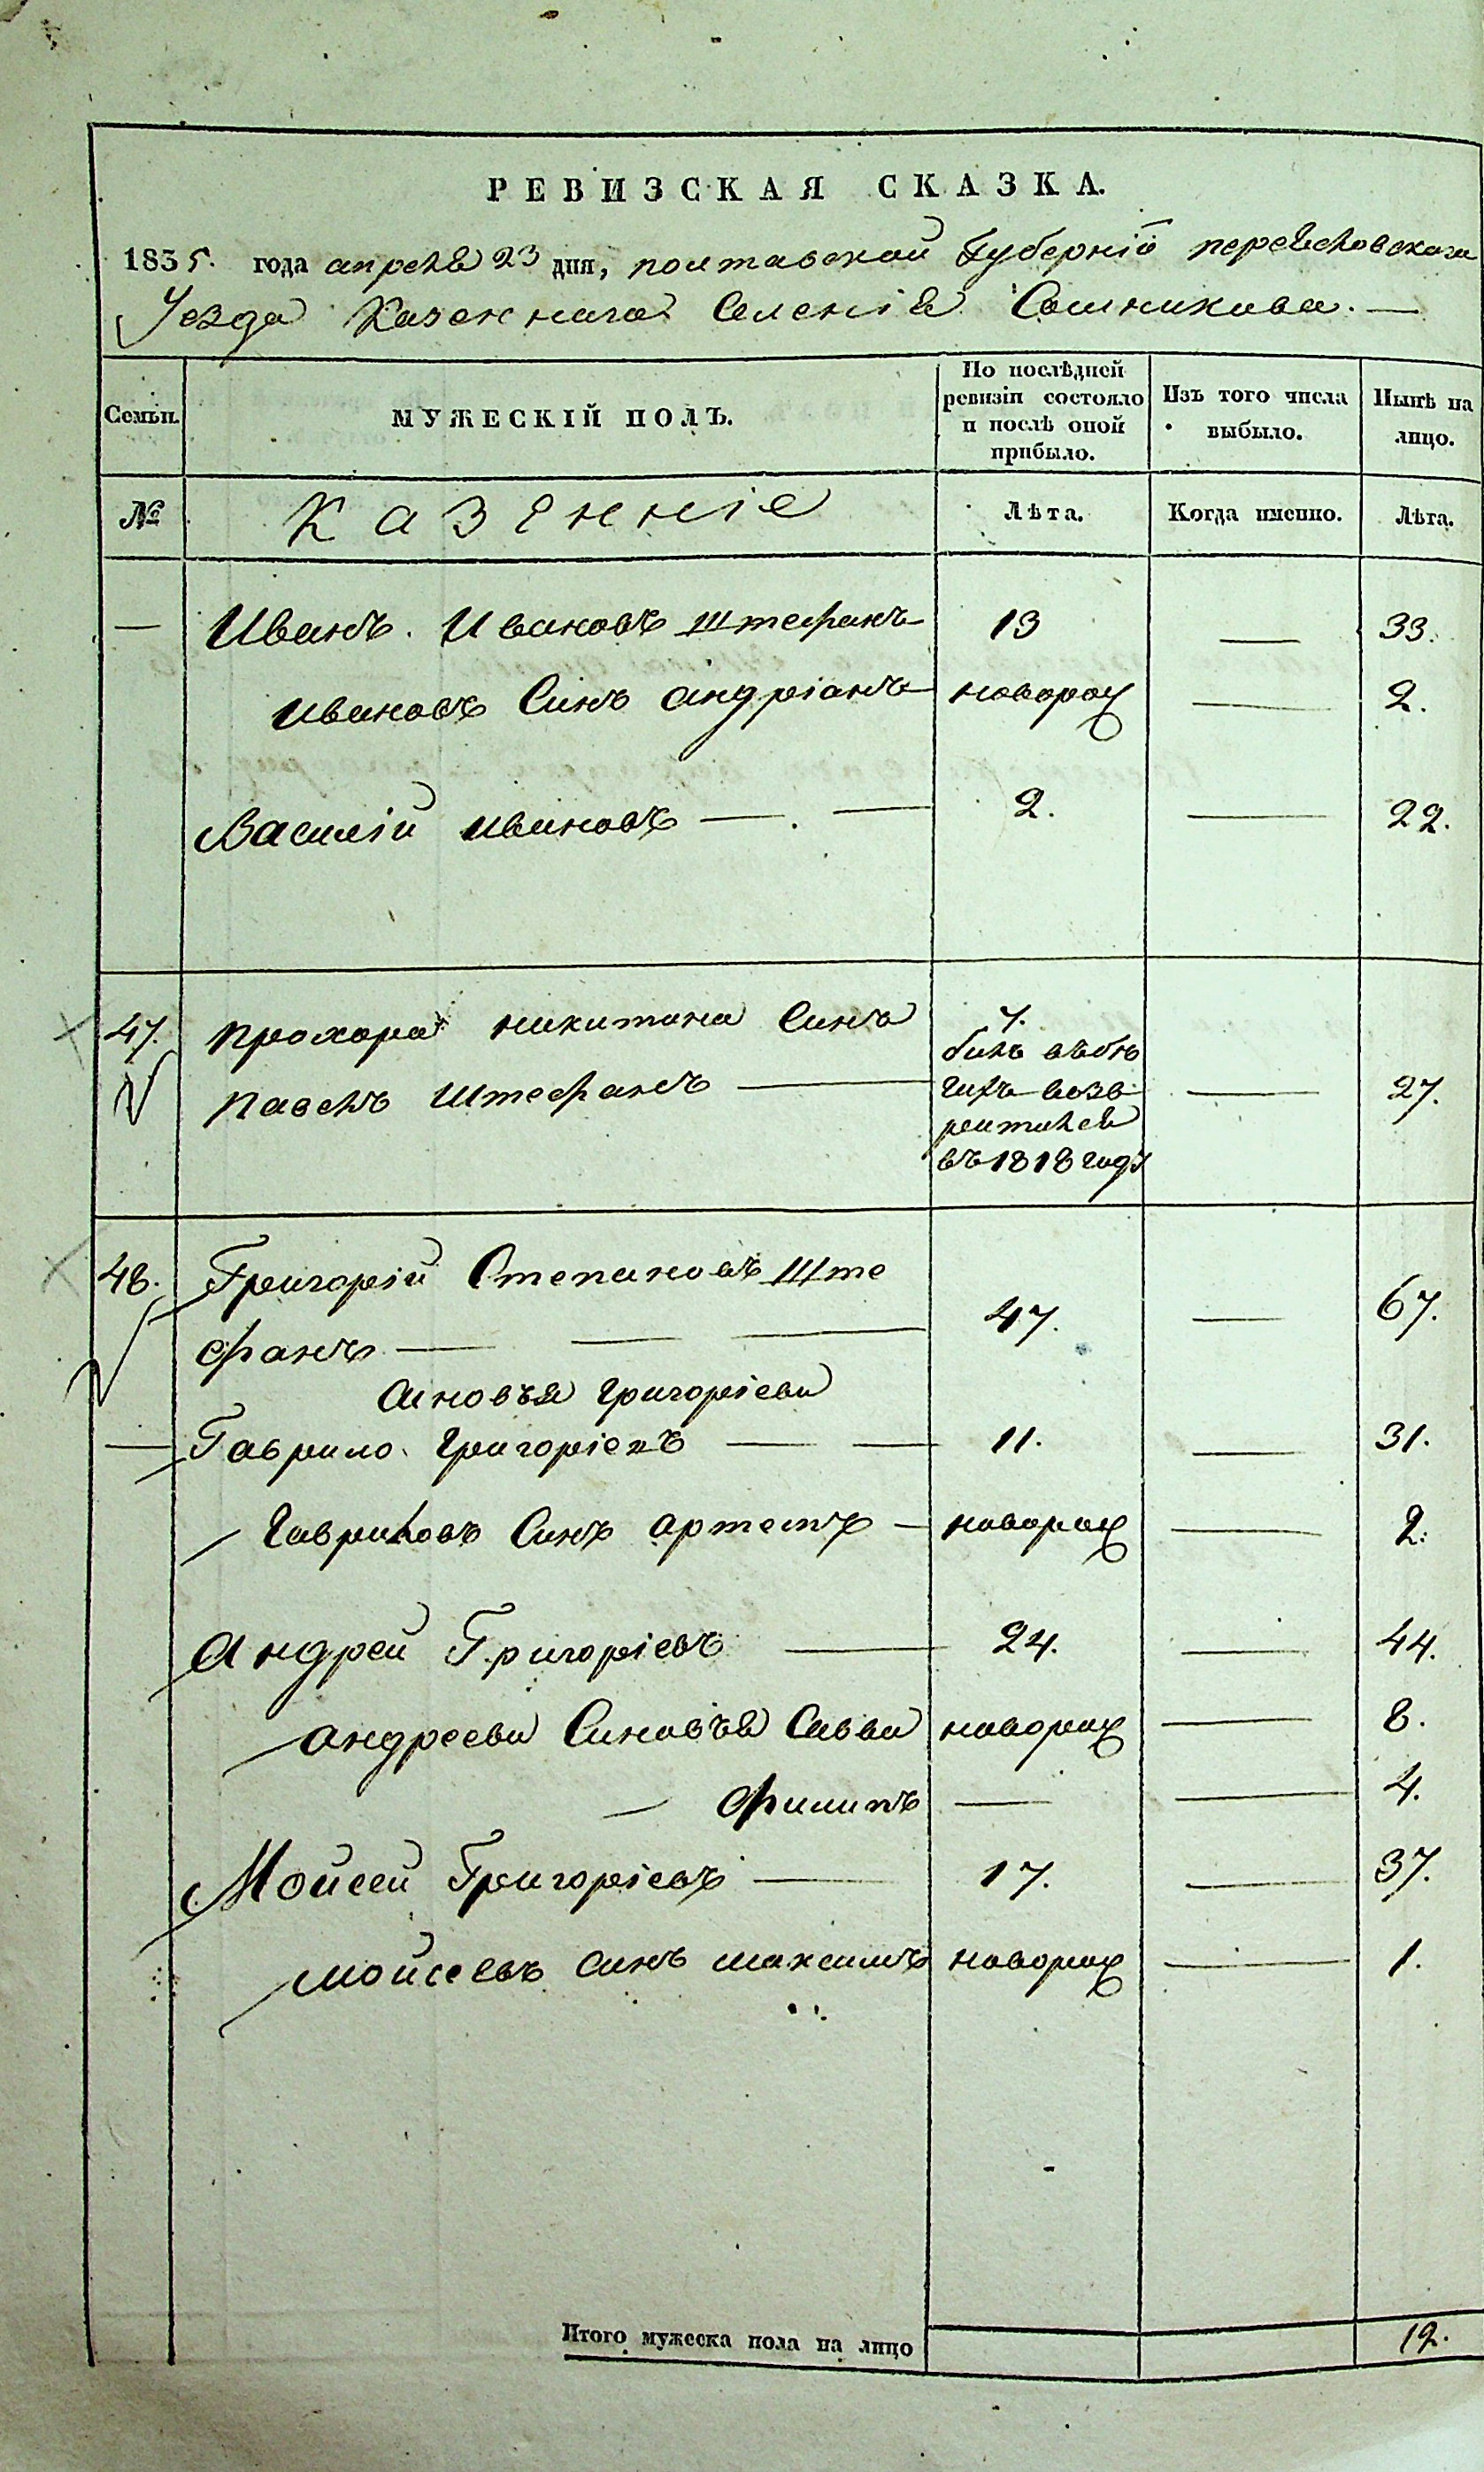 РЕВИЗСКАЯ СКАЗКА.
1835. года апреля 23 дня, полтавской Губерніи переяславскаго
Уезда Казеннаго Селенія Сошникова. —
Семьи.
МУЖЕСКІЙ ПОЛЪ.
По послѣдней ревизіи состояло и послѣ оной прибыло.
Изъ того числа выбыло.
Нынѣ на лицо.
№ Казенніе Лѣта. Когда именно. Лѣта.
— Иванъ. Ивановъ Штефанъ 13 — 33.
Ивановъ Синъ андріанъ новорож — 2.
Василій Ивановъ — . — 2. — 22.
47. Прохора никитина Синъ 7.
билъ въбѣ
Павелъ Штефанъ — гахъ возв — 27.
ратился
въ 1818 году
48. Григорій Степановъ Ште
фанъ — — — 47. — 67.
Синовья Григоріеви
— Гаврило Григоріевъ — — 11. — 31.
Гавриловъ Синъ артемъ — новорож — 2.
Андрей Григоріевъ — 24. — 44.
андрееви Синовъя Савва новорож — 8.
— Филипъ — — 4.
Мойсей Григоріевъ — 17. — 37.
мойсеевъ синъ максимъ новорож — 1.
Итого мужеска пола на лицо 12.